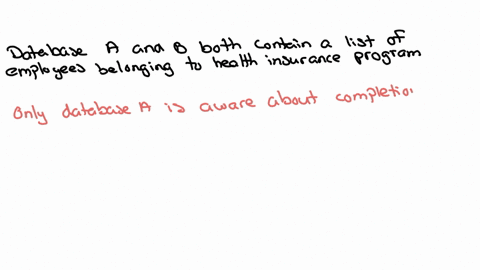 Database A and B both contain a list of
employees belonging to health insurance program
Only database A is aware about completio